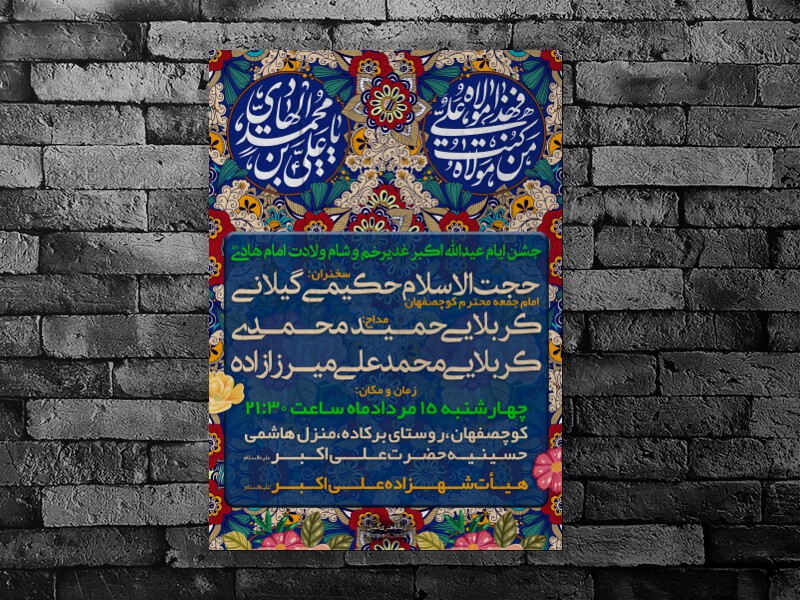 من کنت مولاه
فهذا علی مولاه
یا علی بن محمد الهادی
جشن ایام عیدالله اکبر غدیرخم و شام ولادت امام هادی
سخنران:
حجت الاسلام حکیمی گیلانی
امام جمعه محترم کوچصفهان
مداح:
کربلایی حمید محمدی
کربلایی محمدعلی میرزازاده
زمان و مکان:
چهارشنبه ۱۵ مردادماه ساعت ۲۱:۳۰
کوچصفهان، روستای برکاده، منزل هاشمی
حسینیه حضرت علی اکبر علیه‌السلام
هیأت شهزاده علی اکبر علیه‌السلام